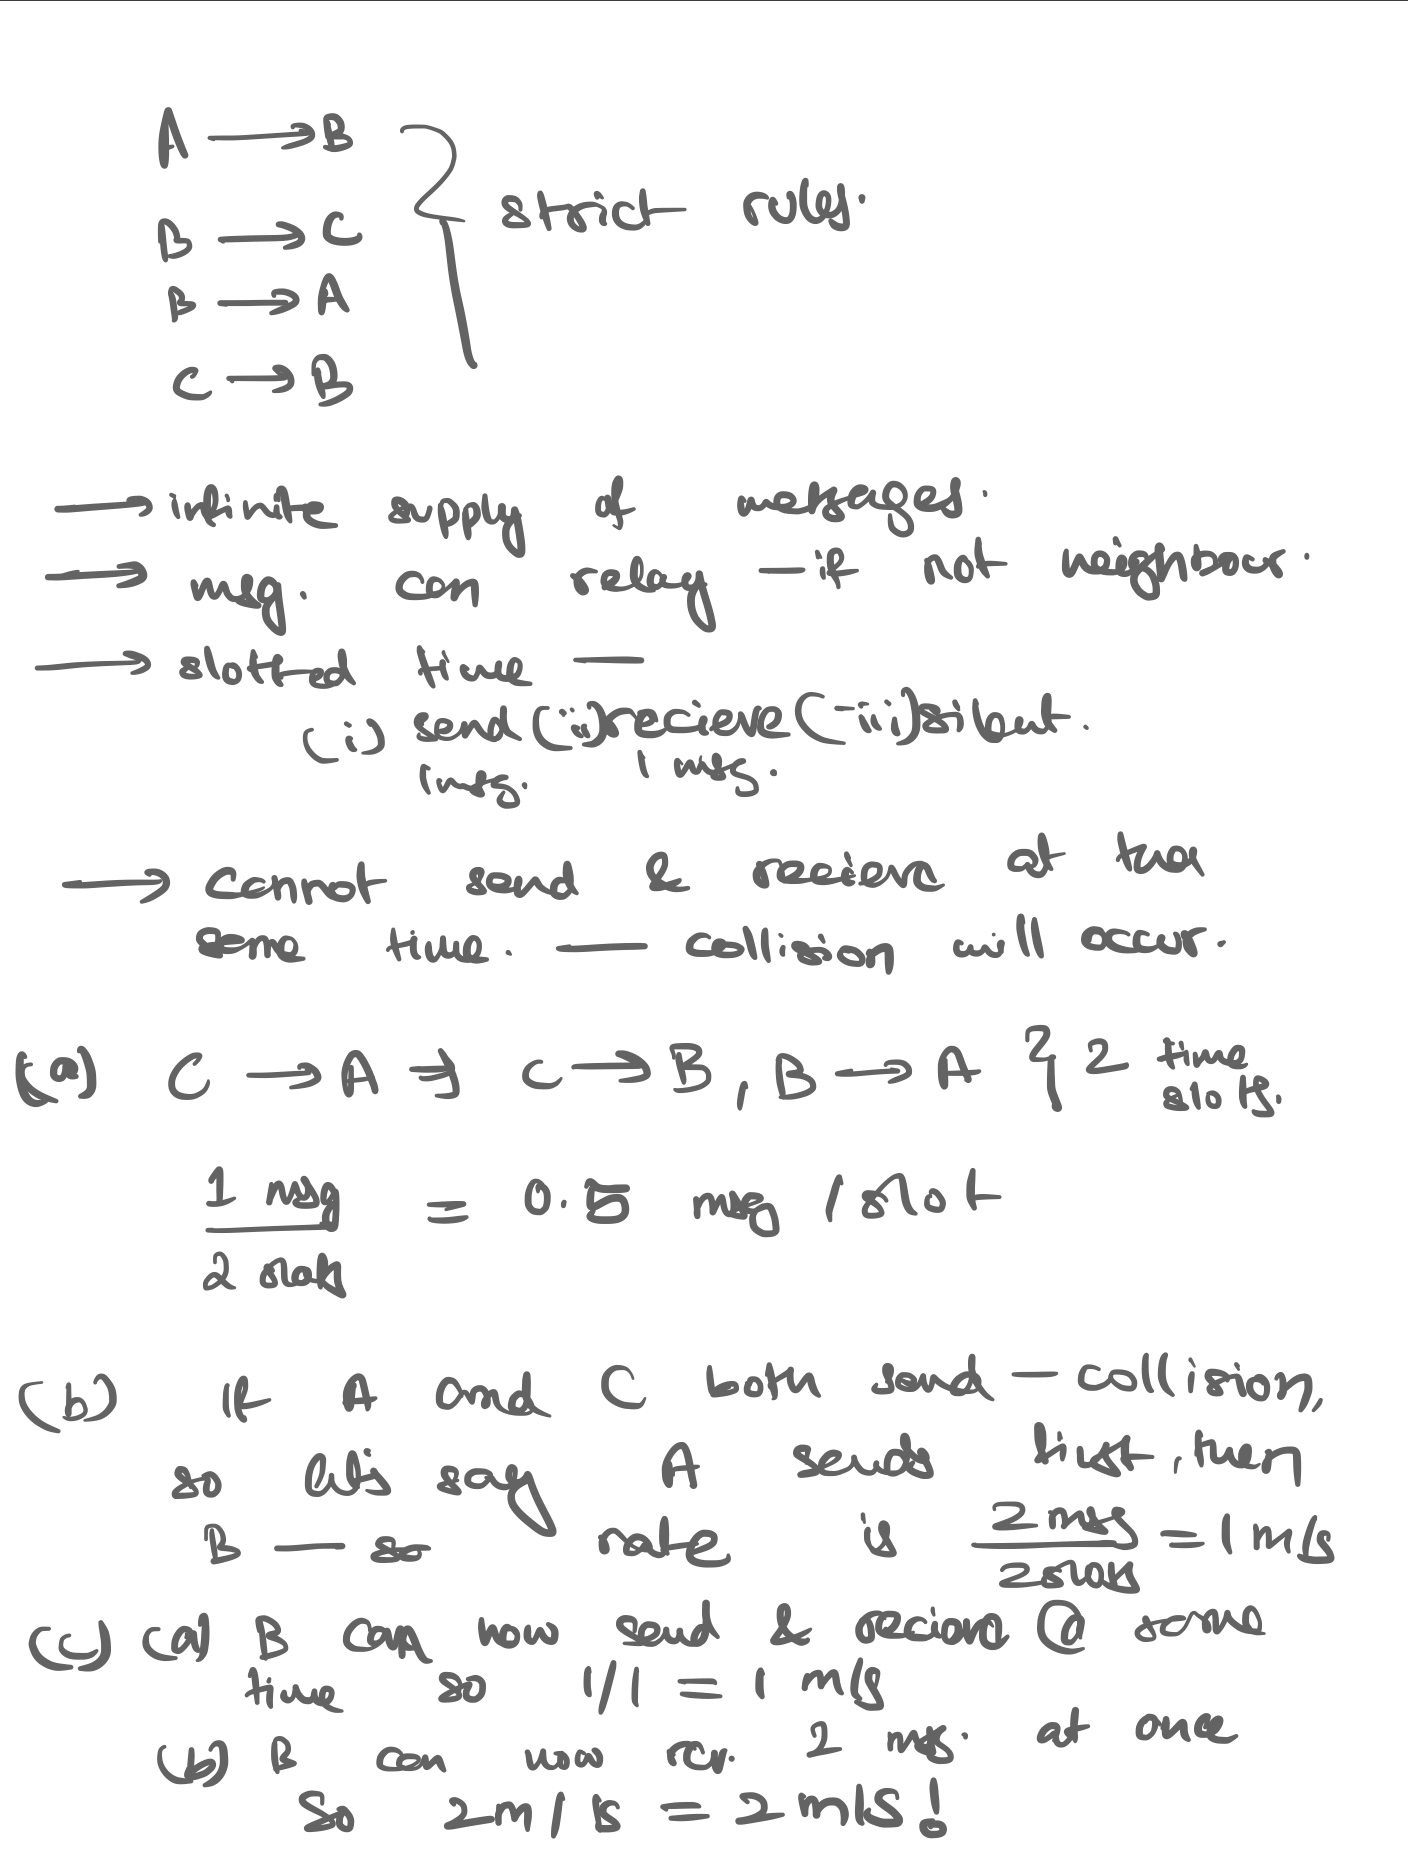 A → B
B → C
B → A
C → B
strict rules.
→ infinite supply of messages.
→ msg. can relay - if not neighbour.
→ slotted time —
(i) send (ii) recieve (iii) silent.
1 msg. 1 msg.
→ cannot send & recieve at the
same time. — collision will occur.
(a) C → A ⇒ C → B, B → A } 2 time
slots.
1 msg
2 slots
= 0.5 msg / slot
(b) If A and C both send - collision,
so let's say A sends first, then
B — so rate is 2 msg / 2 slots = 1 m/s
(c) (a) B can now send & recieve @ same
time so 1/1 = 1 m/s
(b) B can now rcv. 2 msg. at once
So 2m / 1s = 2 m/s!